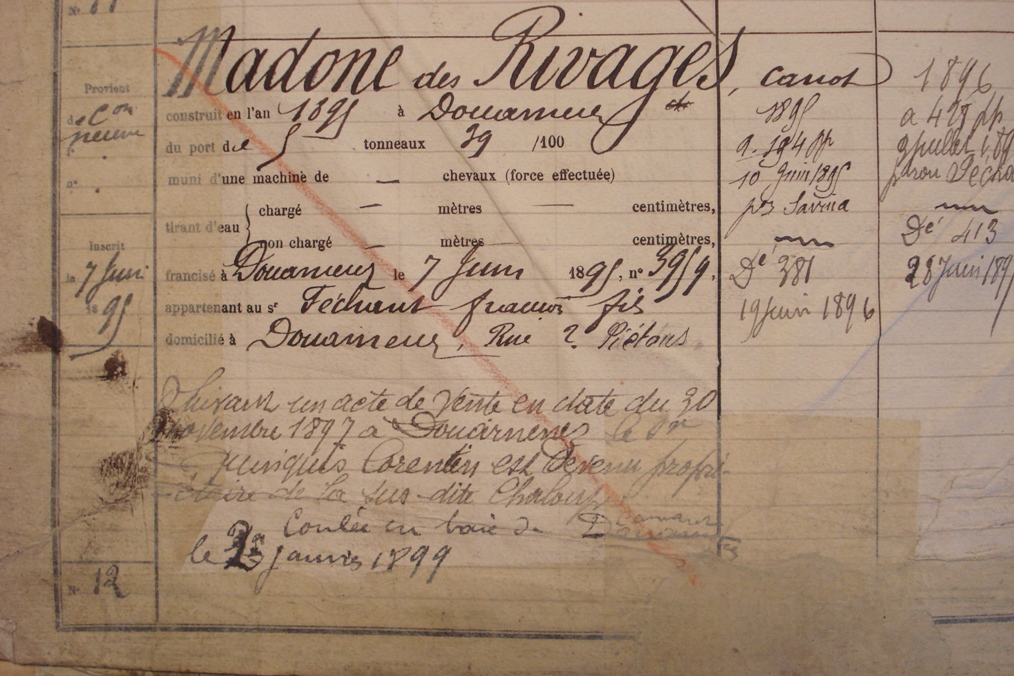 N° 11
Madone des Rivages, canot
1896
Provient
de Con
neuve
n° .
construit en l'an 1895 à Douarnenez
1895
du port de 5 tonneaux 39 /100
10 Juin 1895
muni d'une machine de — chevaux (force effectuée)
tirant d'eau
chargé — mètres — centimètres,
non chargé — mètres centimètres,
Dé 413
Inscrit
le 7 Juin
1895
francisé à Douarnenez le 7 Juin 1895, n° 3959.
Dé 381
28 Juin 189
appartenant au sr Féchant françois fils
19 Juin 1896
domicilié à Douarnenez, Rue Piétons
Suivant un acte de vente en date du 30
novembre 1897 à Douarnenez le Sr
Yunquis Corentin est devenu propri-
étaire de la sus-dite Chaloupe
Coulée en baie de Douarnenez
le janvier 1899
N° 12